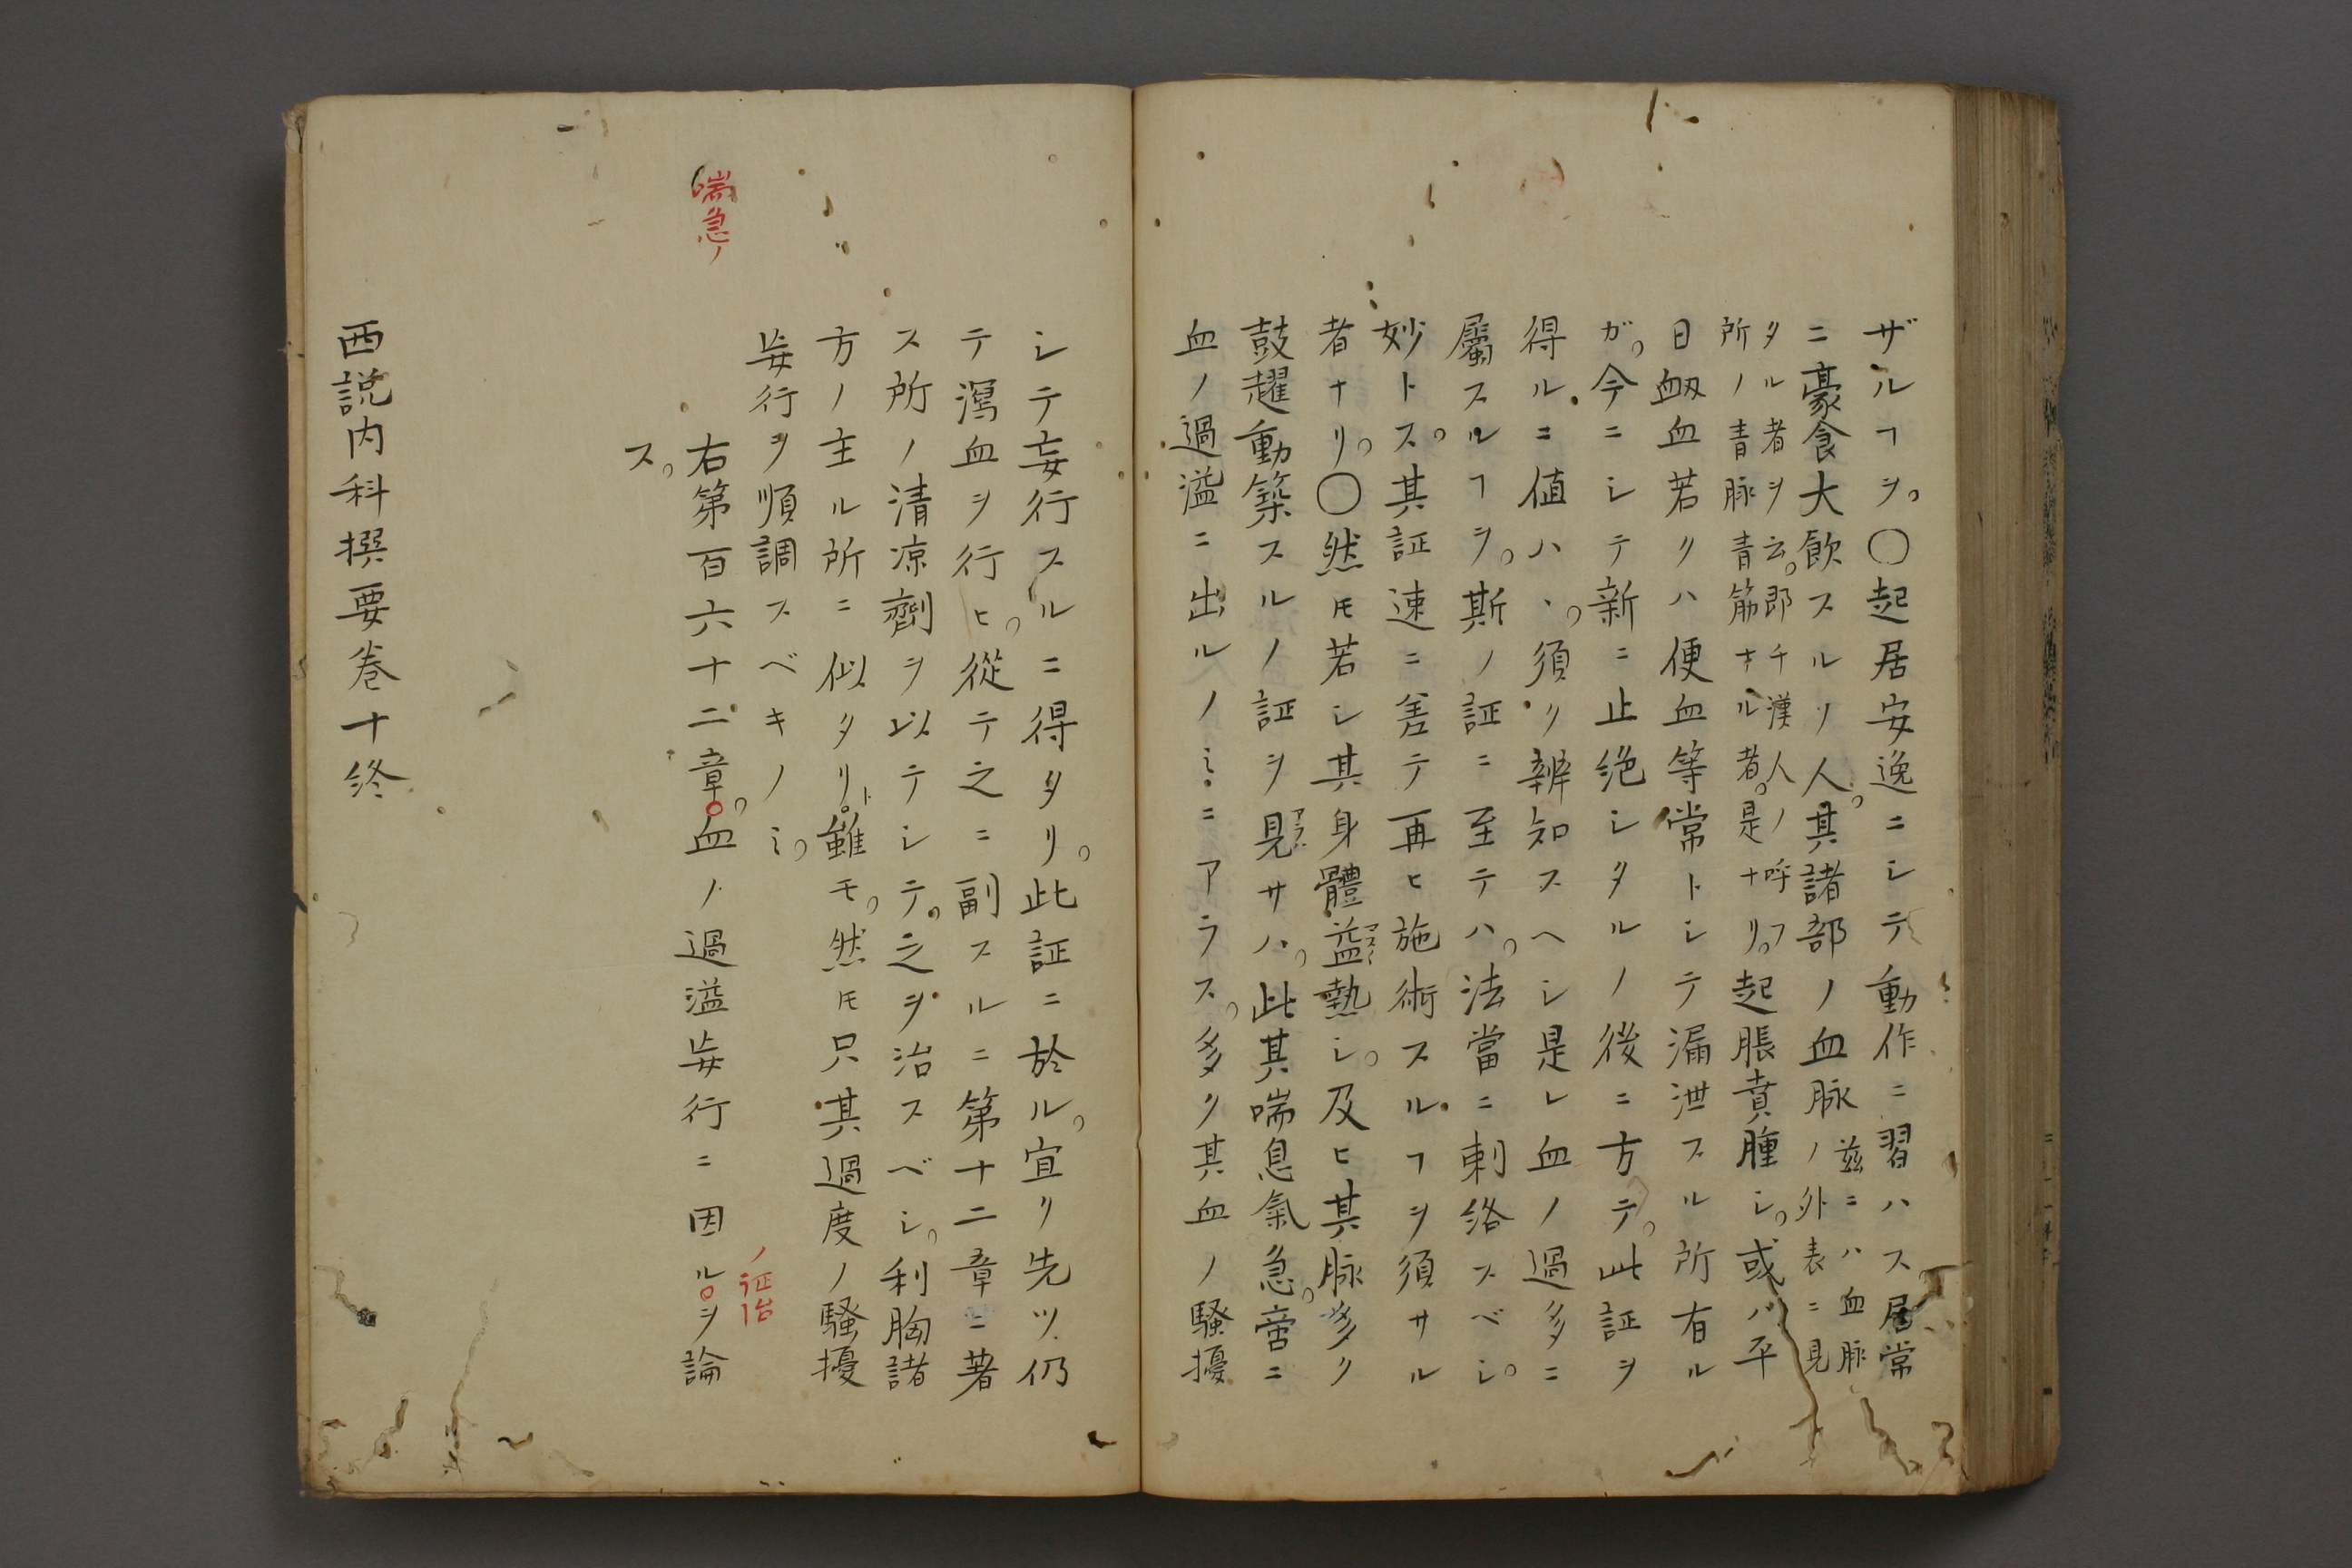 ザルヿヲ。〇起居安逸ニシテ動作ニ習ハス。居常
ニ豪食大飲スルノ人。其諸部ノ血脉
茲ニハ血脉
ノ外表ニ見
タル者ヲ云。即チ漢人ノ呼フ
所ノ青脉青筋ナル者。是ナリ。
起脹賁腫シ。或バ平
日衂血若クハ便血等常トシテ漏泄スル所有ル
ガ。今ニシテ新ニ止絶シタルノ後ニ方テ。此証ヲ
得ルニ値ハヽ。須ク辨知スヘシ是レ血ノ過多ニ
屬スルヿヲ。斯ノ証ニ至テハ。法當ニ刺絡スベシ。
妙トス。其証速ニ差テ再ヒ施術スルヿヲ須サル
者ナリ。〇然モ若シ其身體益熱シ。及ヒ其脉多ク
マスー
鼓趯動築スルノ証ヲ見サハ。此其喘息氣急。啻ニ
アラハ
血ノ過溢ニ出ルノミニアラス。多ク其血ノ騷擾
シテ妄行スルニ得タリ。此証ニ於ル。宜ク先ツ仍
テ瀉血ヲ行ヒ。從テ之ニ副スルニ第十二章ニ著
ス所ノ清凉劑ヲ以テシテ。之ヲ治スベシ。利胸諸
方ノ主ル所ニ似タリト雖モ。然モ只其過度ノ騷擾
妄行ヲ順調スベキノミ。
喘急ノ
右第百六十二章。血ノ過溢妄行ニ因ルヲ論
ノ証治
ス。
西説内科撰要巻十終